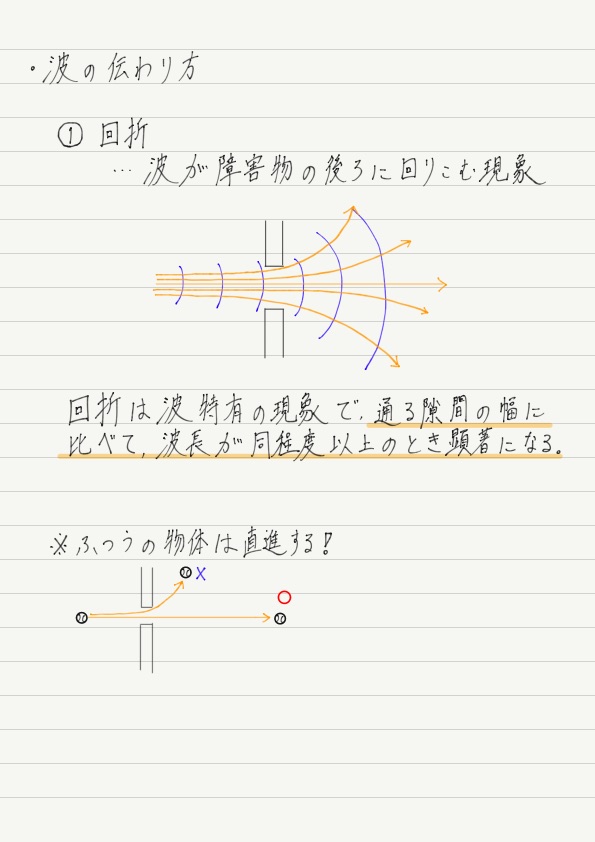 ・波の伝わり方
① 回折
… 波が障害物の後ろに回りこむ現象
回折は波特有の現象で、通る隙間の幅に
比べて、波長が同程度以上のとき顕著になる。
※ふつうの物体は直進する!